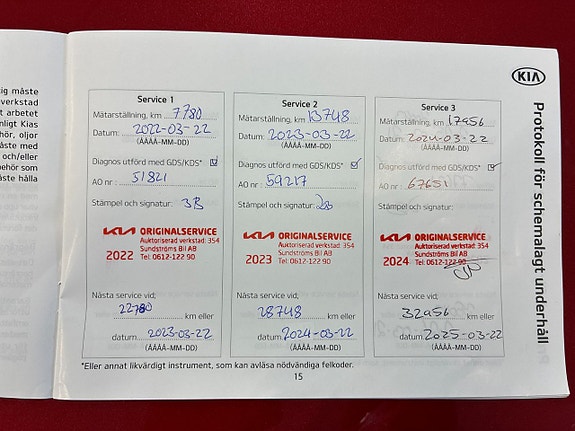 ig måste
verkstad
t arbetet
nligt Kias
hör, oljor
åste med
och/eller
behör som
åste hålla
KIA
Protokoll för schemalagt underhåll
Service 1
Mätarställning, km 7780
Datum: 2022-03-22
(ÅÅÅÅ-MM-DD)
Diagnos utförd med GDS/KDS*
AO nr : 51821
Stämpel och signatur:
KIA ORIGINALSERVICE
Auktoriserad verkstad: 354
2022 Sundströms Bil AB
Tel: 0612-122 90
Nästa service vid,
22780 km eller
datum 2023-03-22
(ÅÅÅÅ-MM-DD)
Service 2
Mätarställning, km 13748
Datum: 2023-03-22
(ÅÅÅÅ-MM-DD)
Diagnos utförd med GDS/KDS*
AO nr : 59217
Stämpel och signatur:
KIA ORIGINALSERVICE
Auktoriserad verkstad: 354
2023 Sundströms Bil AB
Tel: 0612-122 90
Nästa service vid,
28748 km eller
datum 2024-03-22
(ÅÅÅÅ-MM-DD)
Service 3
Mätarställning, km 17956
Datum: 2024-03-22
(ÅÅÅÅ-MM-DD)
Diagnos utförd med GDS/KDS*
AO nr : 67651
Stämpel och signatur:
KIA ORIGINALSERVICE
Auktoriserad verkstad: 354
2024 Sundströms Bil AB
Tel: 0612-122 90
Nästa service vid,
32956 km eller
datum: 2025-03-22
(ÅÅÅÅ-MM-DD)
*Eller annat likvärdigt instrument, som kan avläsa nödvändiga felkoder.
15